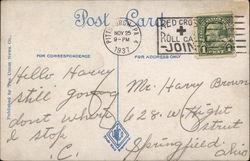 Post Card
PITTSBURGH, PA. 4
NOV 25
9-PM
1937
RED CROSS
ROLL CALL
JOIN
1
FOR CORRESPONDENCE
FOR ADDRESS ONLY
Hello Harry
still going
dont where
I stop
C.
Mr. Harry Brown
628 W Hight
street
Springfield
Ohio